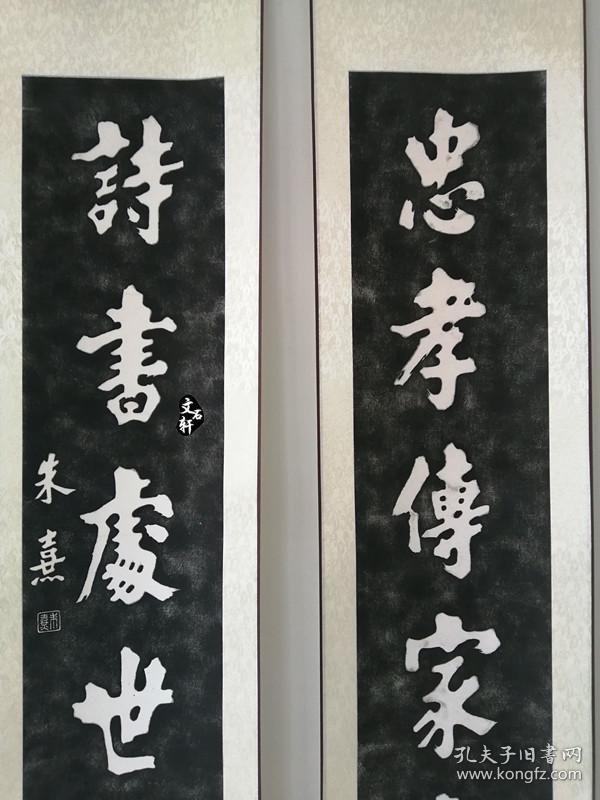 忠孝傳家
詩書處世
朱熹
朱熹
文石轩
孔夫子旧書网
www.kongfz.com